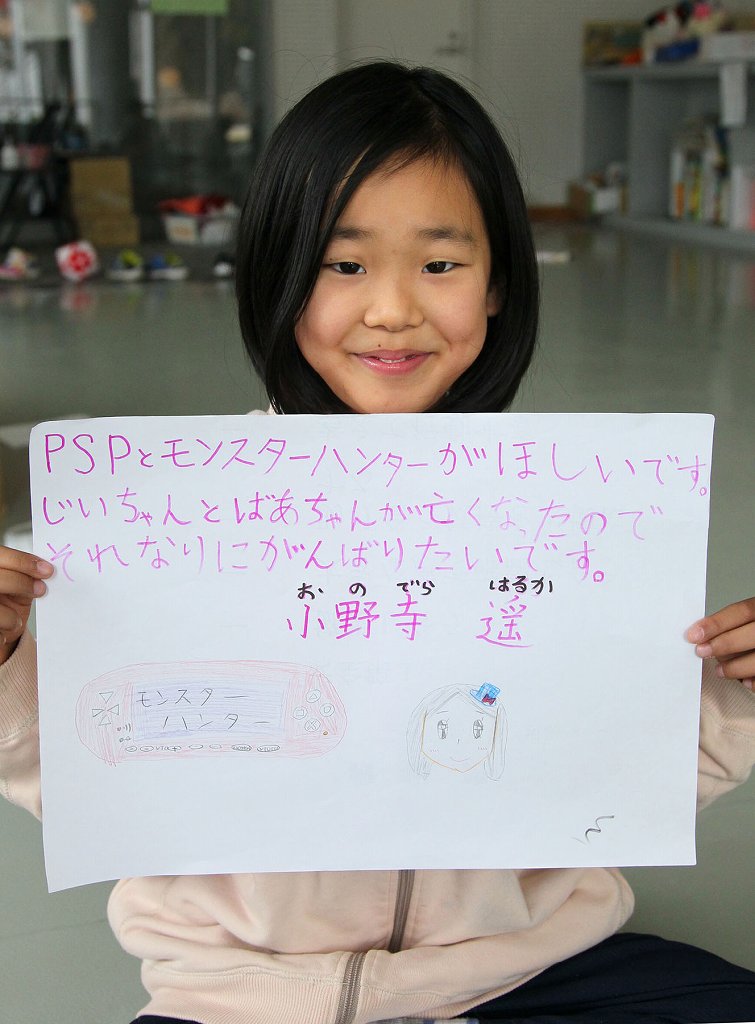 PSPとモンスターハンターがほしいです。
じいちゃんとばあちゃんが亡くなったので
それなりにがんばりたいです。
おのでら はるか
小野寺 遥
モンスター
ハンター